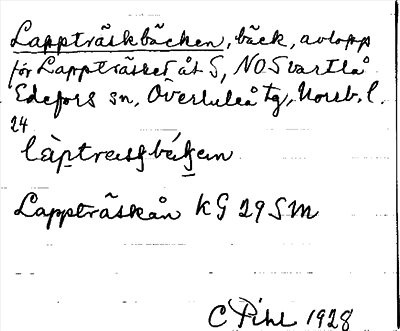 Lappträskbäcken, bäck, avlopp
för Lappträsket åt S, NO Svartlå
Edefors sn, Överluleå tg, Norrb. l.
24
Lappträskån KG 29 SM
C Pihl 1928